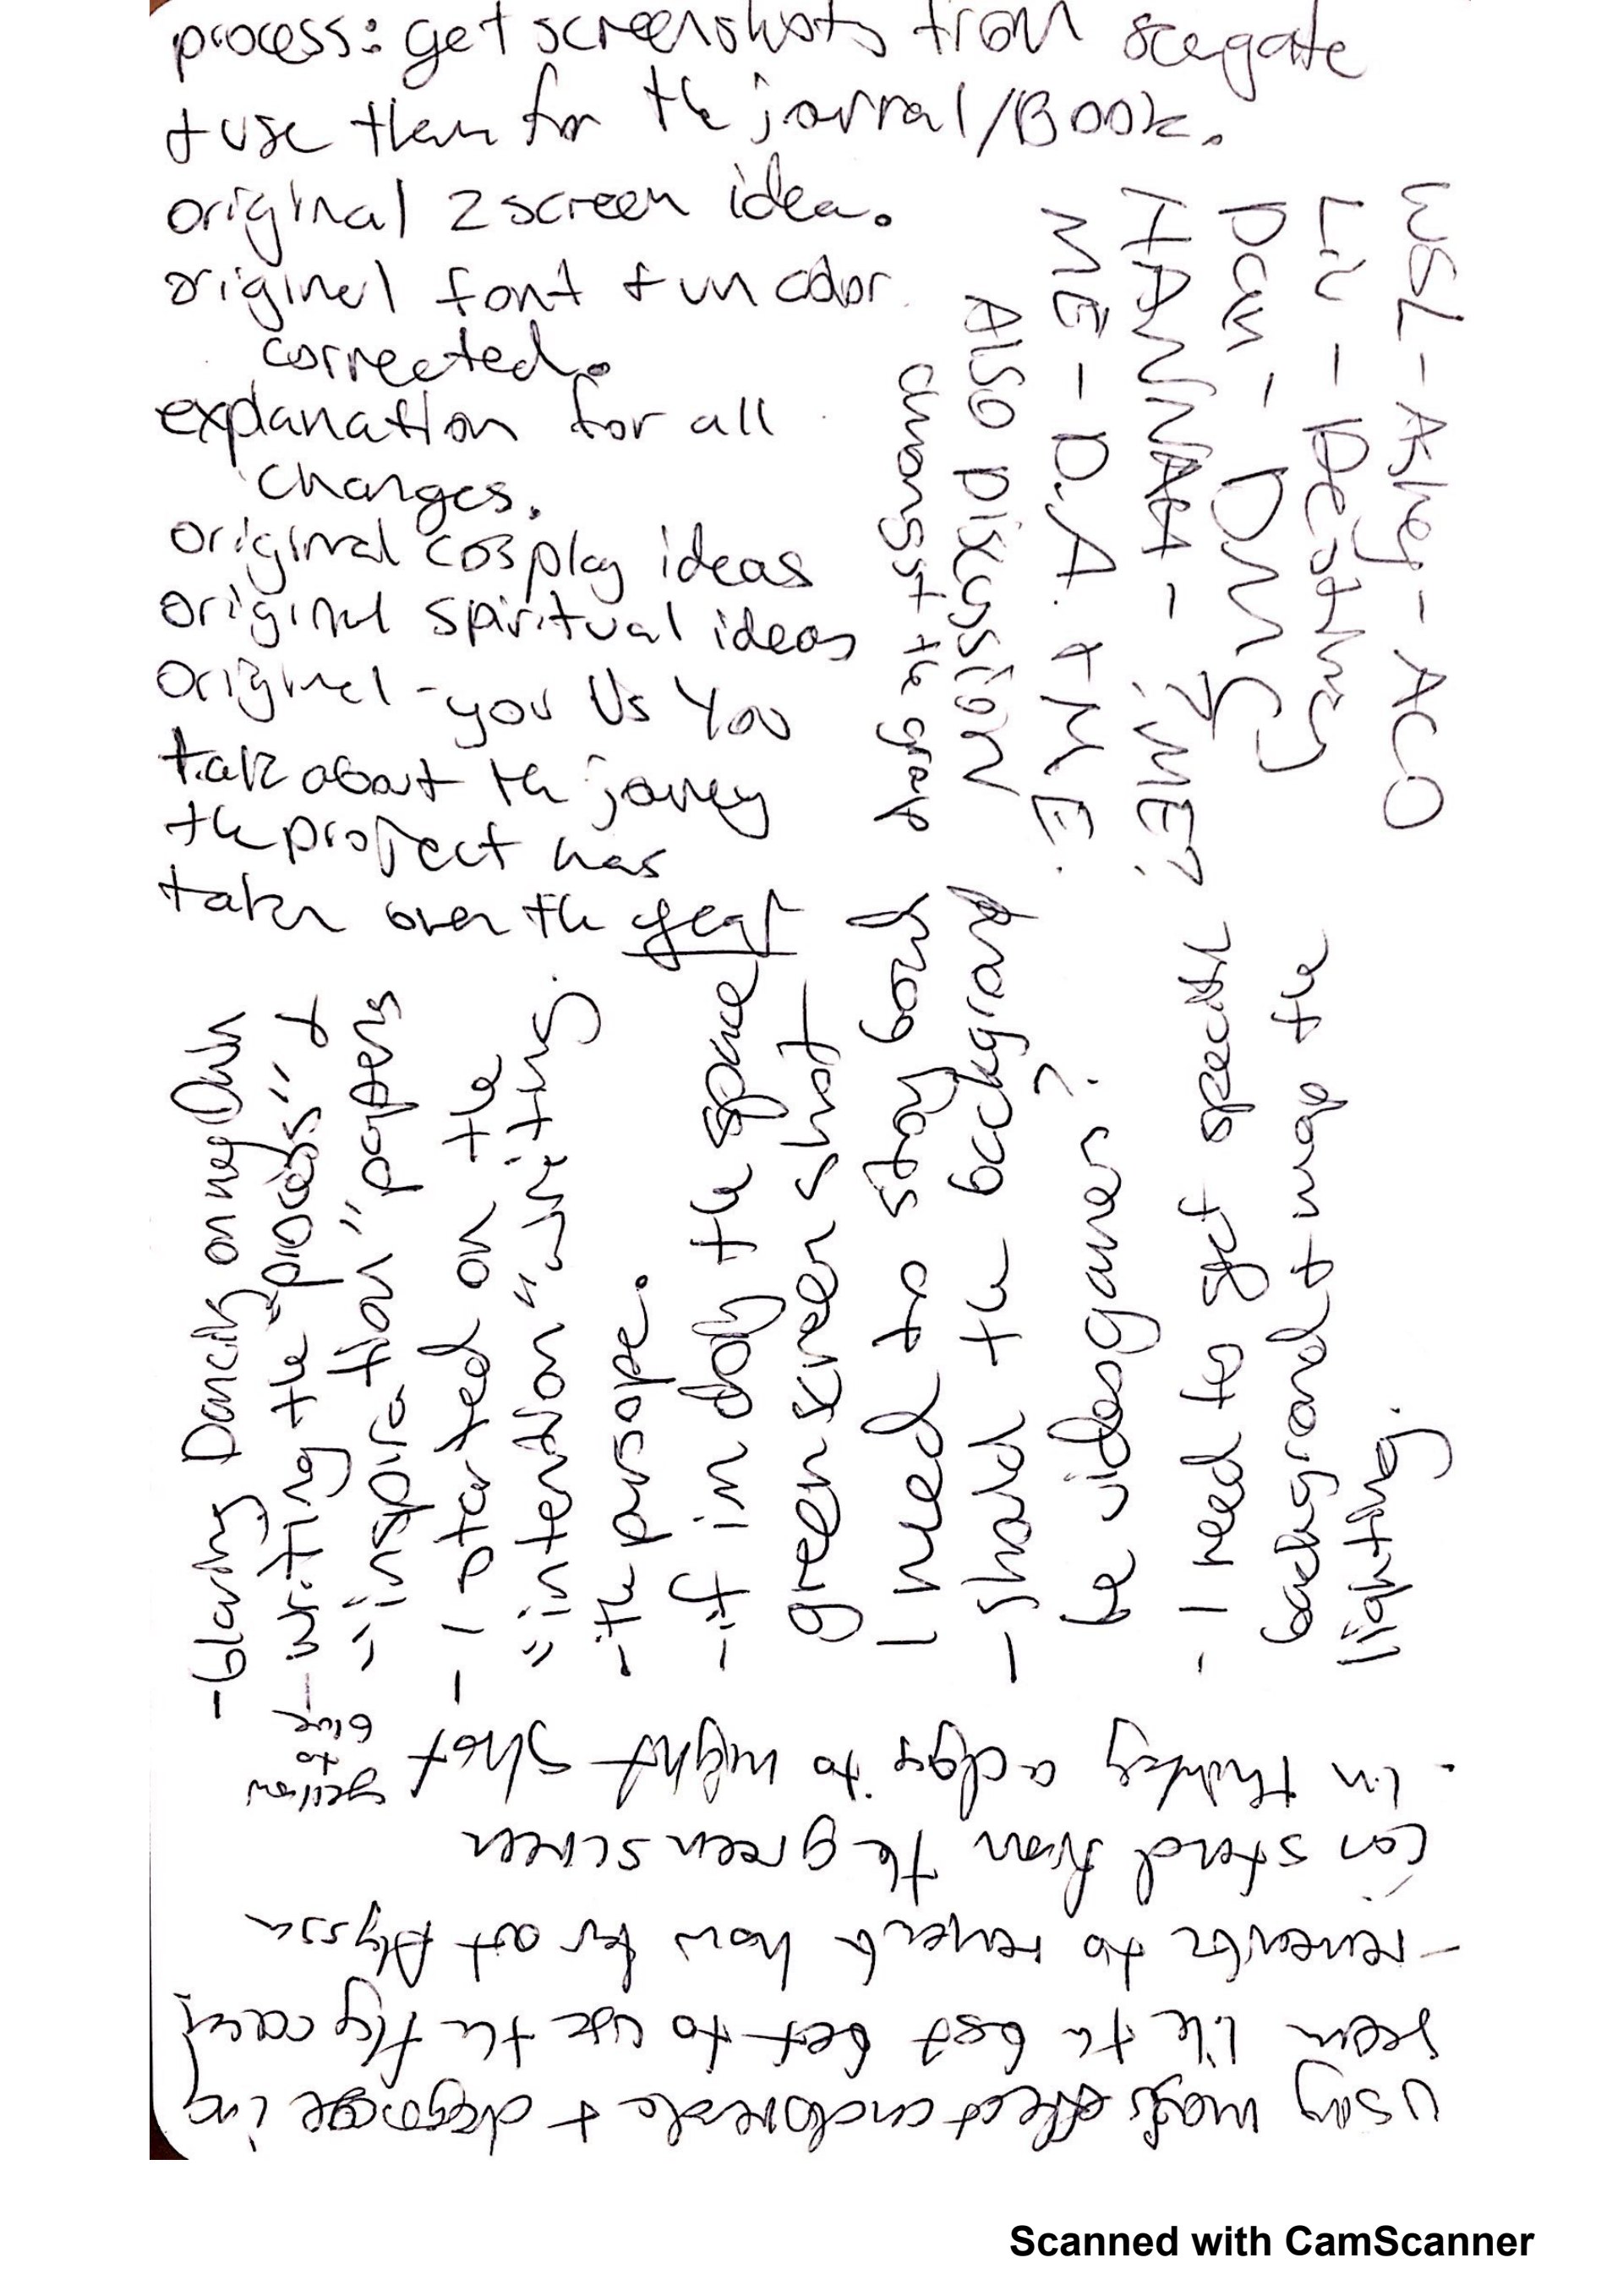 process: get screenshots from seagate
+ use them for the journal/Book.
original 2 screen idea.
original font + un color
corrected.
explanation for all
changes.
original cosplay ideas
original spiritual ideas
original - you Us You
talk about the journey
the project has
taken over the year
WSL - Ashey - ACO
Lil - Destiny
DCW -
HANNAH - ME?
ME - D.A. + ME.
ALSO DISCUSSION
amongst the group
- Dancing on my Own
- writing the "process" +
"inspiration" papers
- I started on the
"intention" writing.
- the purpose.
- if in doly the space
green screen shot
I need to stay bound
- should the background
be videogames?
- I need to get specific
background + map the
lighting.
- I'm thinking edges to might shot
yellow
to
blue
can stand from the green screen
- remember to research how far out Alyssa
seem like the best bet to use the fly cases,
Using image effect + degage in